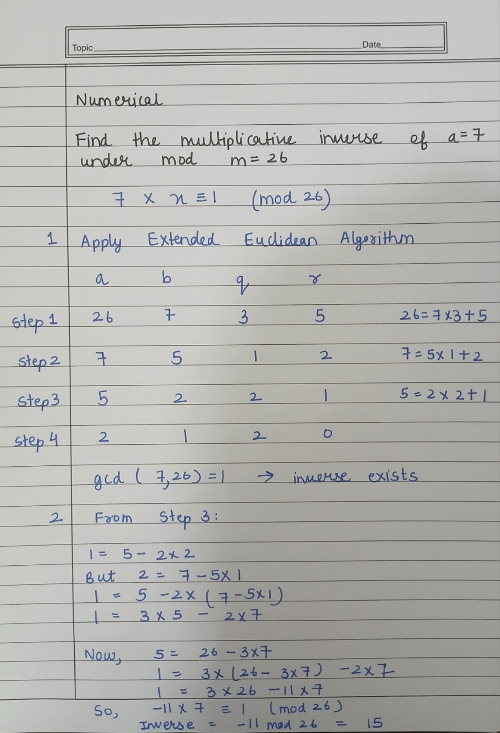 Topic Date
Numerical
Find the multiplicative inverse of a=7
under mod m=26
7 x x ≡ 1 (mod 26)
1 Apply Extended Euclidean Algorithm
a b q r
Step 1 26 7 3 5 26=7x3+5
Step 2 7 5 1 2 7=5x1+2
Step 3 5 2 2 1 5=2x2+1
Step 4 2 1 2 0
gcd (7,26)=1 → inverse exists
2 From Step 3:
1 = 5 - 2x2
But 2 = 7-5x1
1 = 5 - 2x (7-5x1)
1 = 3x5 - 2x7
Now, 5 = 26 - 3x7
1 = 3x(26 - 3x7) - 2x7
1 = 3x26 - 11x7
So, -11x7 ≡ 1 (mod 26)
Inverse = -11 mod 26 = 15